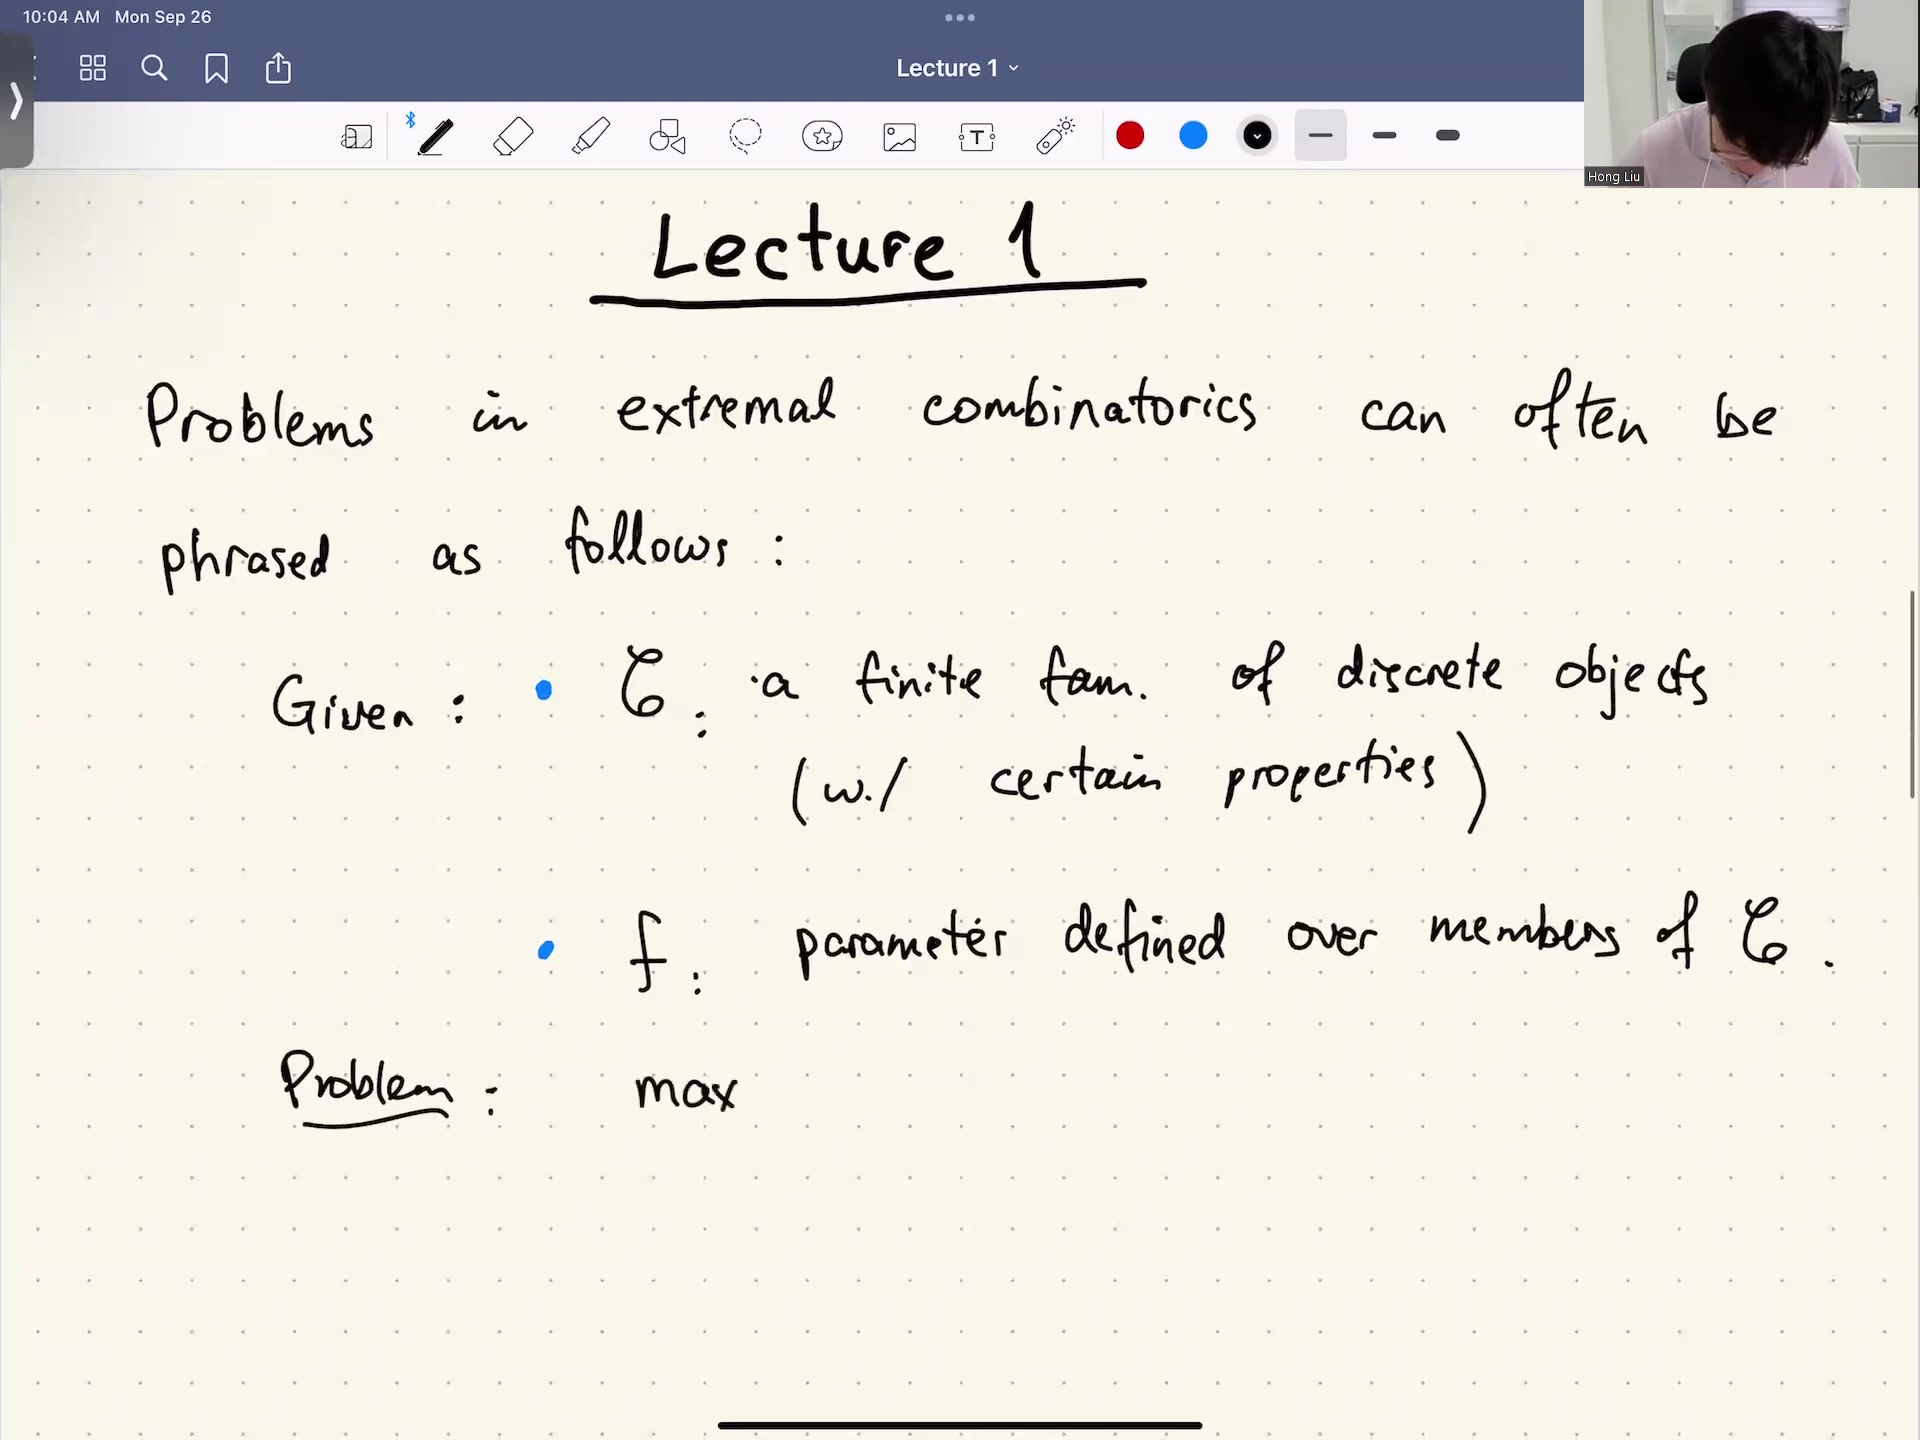 10:04 AM Mon Sep 26
Lecture 1
Hong Liu
Lecture 1
Problems in extremal combinatorics can often be
phrased as follows :
Given : • 𝒞 : a finite fam. of discrete objects
(w./ certain properties)
• f : parameter defined over members of 𝒞 .
Problem : max